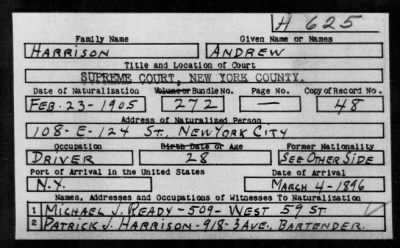 H 625
Family Name Given Name or Names
HARRISON ANDREW
Title and Location of Court
SUPREME COURT, NEW YORK COUNTY.
Date of Naturalization Volume or Bundle No. Page No. Copy of Record No.
FEB-23-1905 272 — 48
Address of Naturalized Person
108-E-124 ST. NEW YORK CITY
Occupation Birth Date or Age Former Nationality
DRIVER 28 SEE OTHER SIDE
Port of Arrival in the United States Date of Arrival
N.Y. MARCH 4-1896
Names, Addresses and Occupations of Witnesses To Naturalization
1 MICHAEL J. READY-509-WEST 59 ST
2 PATRICK J. HARRISON-918-3 AVE, BARTENDER